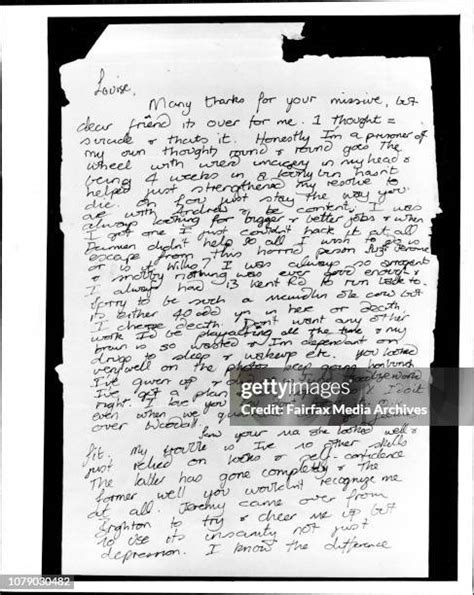 Louise,
Many thanks for your missive, but
dear friend its over for me. I thought =
suicide & thats it. Honestly Im a prisoner of
my own thoughts round & round goes the
wheel with weird imagery in my head &
being 4 weeks in a loonybin hasn't
helped just strengthened my resolve to
die. Oh for just stay the way you
are with kindness & be content, I was
always looking for bigger & better jobs & when
I got one I just couldn't hack it at all
didn't help so all I wish to do is
escape from this horrid person
or is it Willis? I was always so arrogant
& snotty nothing was ever good enough &
I always had 13 Kent Rd to run back to.
Sorry to be such a maudlin ole cow but
its either 40 odd yrs in here or death
I choose death. Don't want any other
work Id be playacting all the time & my
brain is so wasted & I'm dependant on
drugs to sleep & wakeup etc. You looked
very well on the keep going
I've given up &
I've got a plan
right. I love you
even when we
over
Saw your ma she looked well &
fit. My trouble is Ive no other skills
just relied on looks & self-confidence
The latter has gone completely & the
former well you wouldn't recognize me
at all. Jeremy came over from
Brighton to try & cheer me up but
to use its insanity not just
depression. I know the difference
gettyimages
Credit: Fairfax Media Archives
1079030482